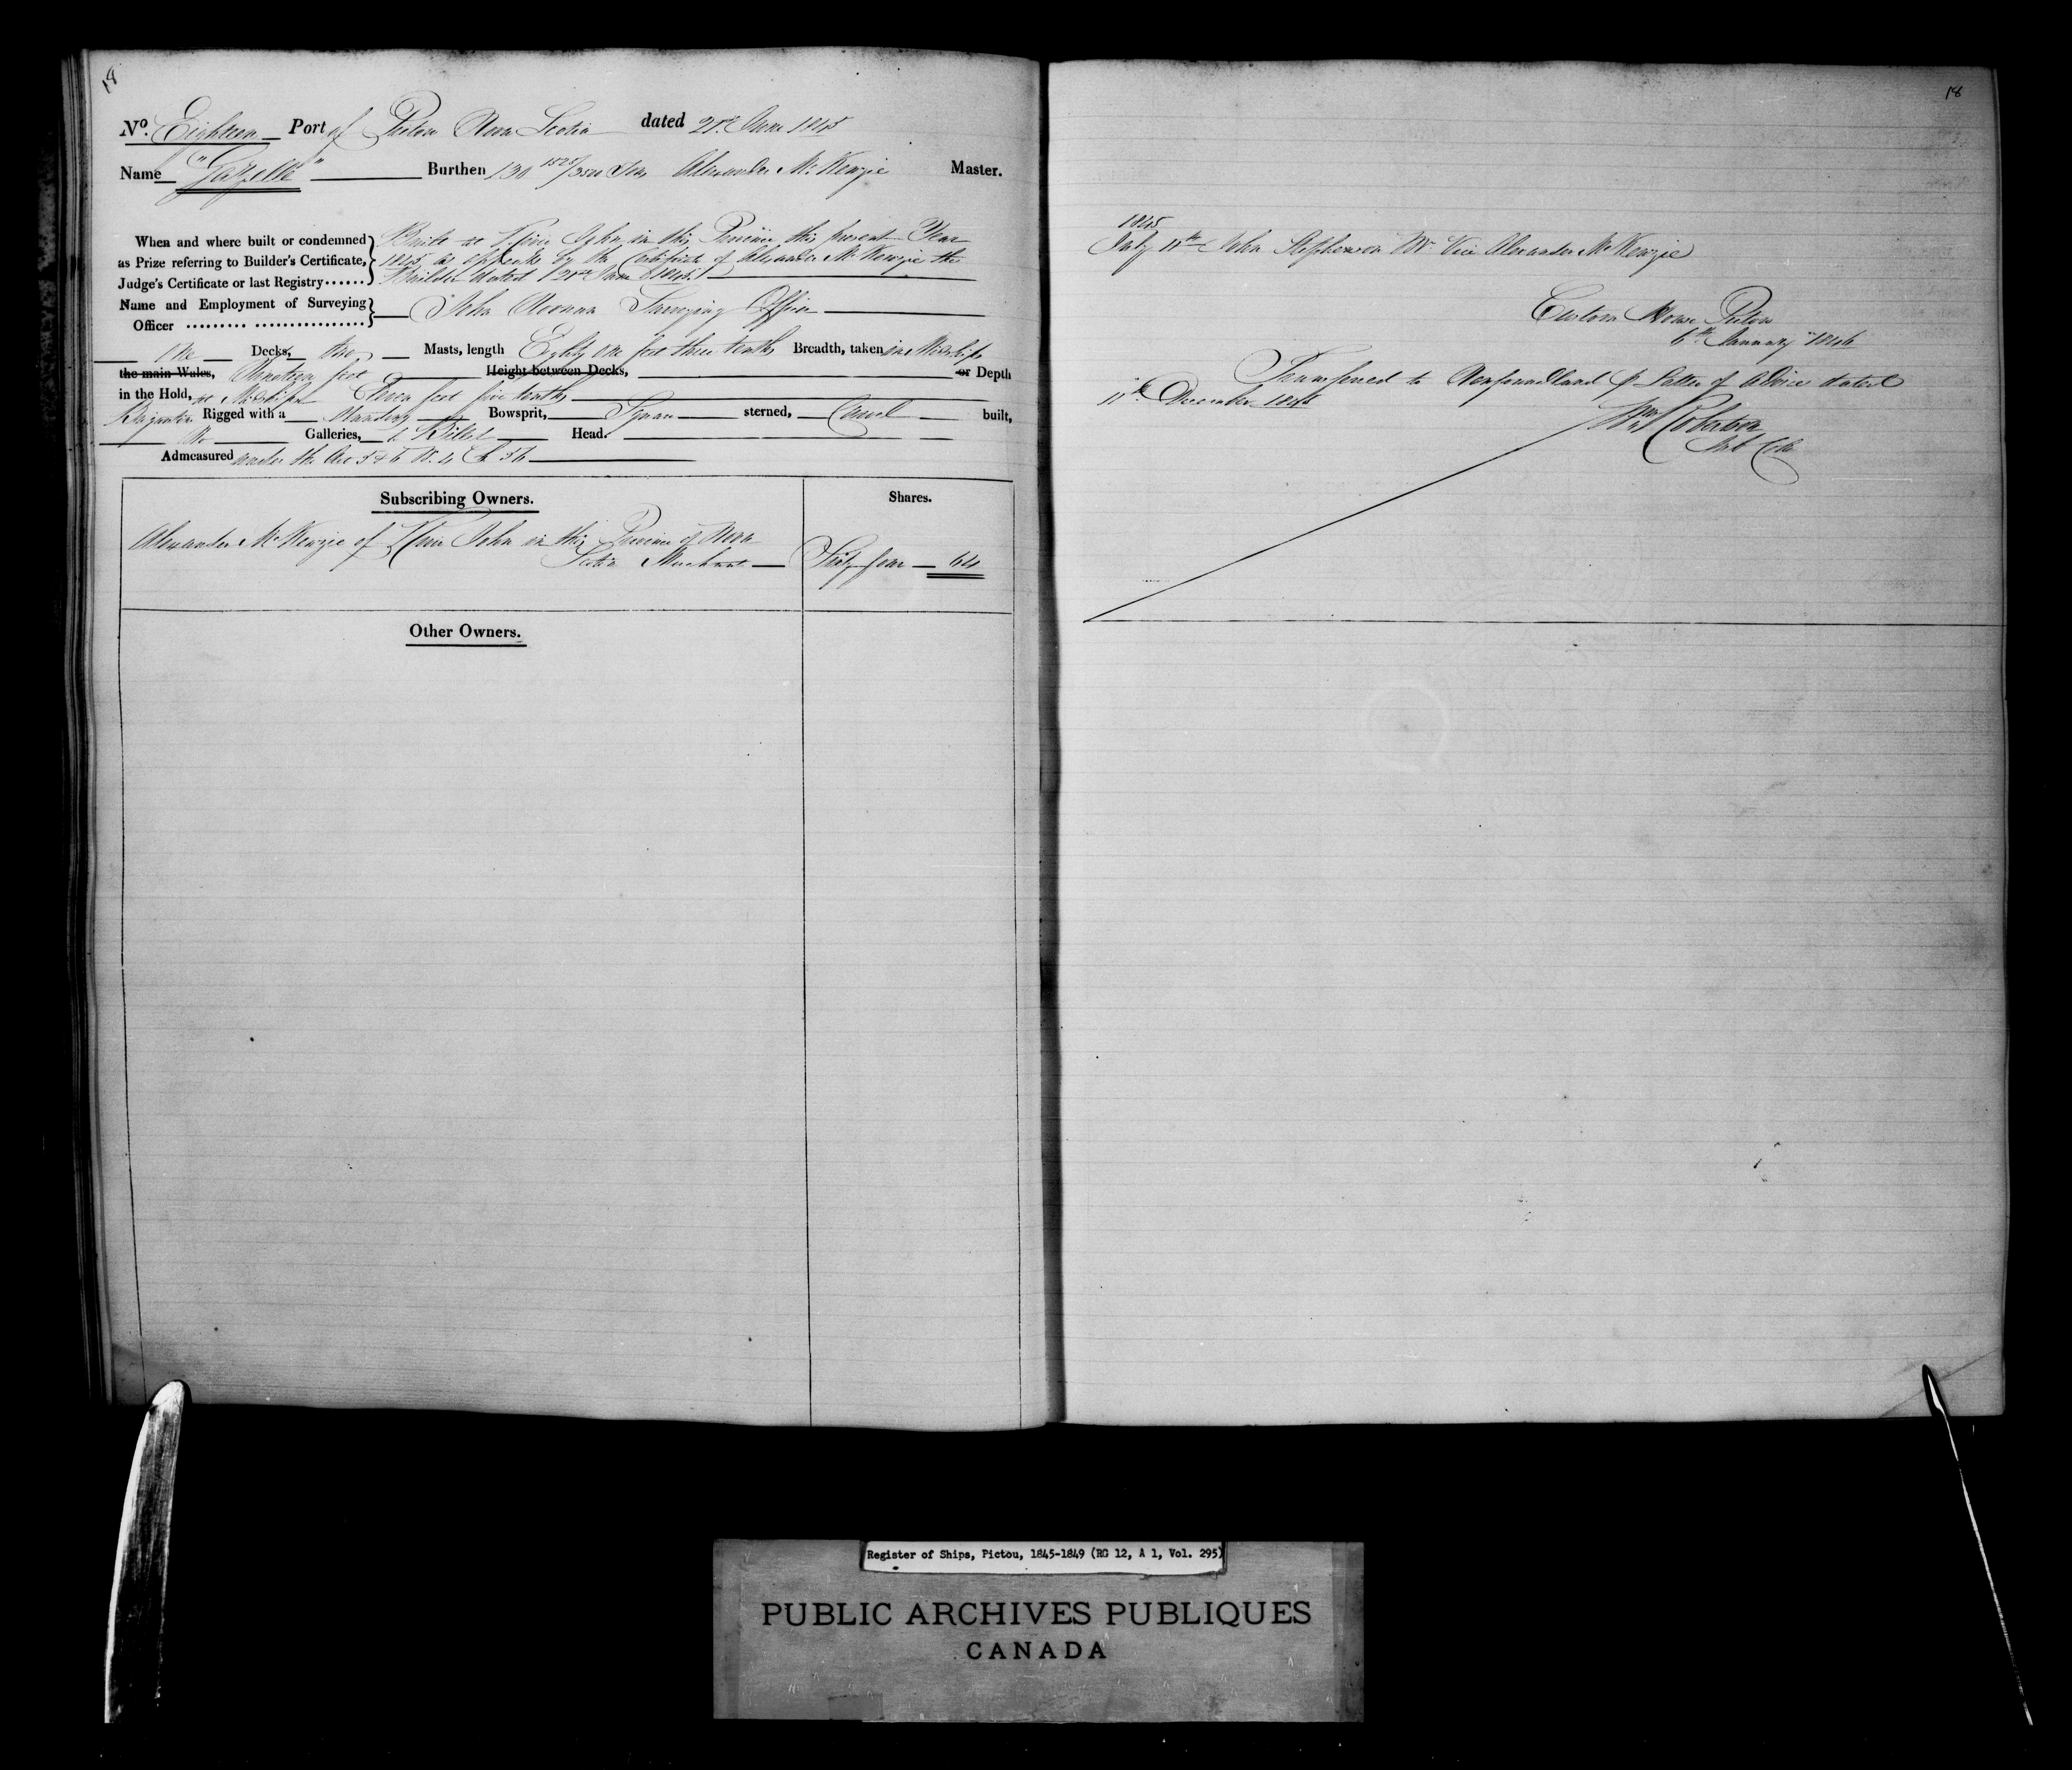 18
No. Eighteen Port of Pictou Nova Scotia dated 21st June 1845
Name "Gazelle" Burthen 130 1525/3500 Tons Alexander McKenzie Master.
When and where built or condemned as Prize referring to Builder's Certificate, Judge's Certificate or last Registry......
Built at River John in this Province this present Year
1845 as appears by the Certificate of Alexander McKenzie the
Builder dated June 1845.
Name and Employment of Surveying Officer
John Surveying Officer
One Decks, two Masts, length Eighty one feet three tenths Breadth, taken in Midships
the main Wales, Nineteen feet Height between Decks, or Depth
in the Hold, at Midships Eleven feet five tenths
Brigantine Rigged with a Standing Bowsprit, Square sterned, Carvel built,
No Galleries, a Billet Head.
Admeasured under the Act 5 & 6 W. 4 Ch 56
Subscribing Owners. Shares.
Alexander McKenzie of River John in this Province of Nova
Scotia Merchant Sixty four 64
Other Owners.
18
1845
July 11th John Stephenson Mr. Vice Alexander McKenzie
Custom House Pictou
6th January 1846
Transferred to Newfoundland p. Letter of Advice dated
11th December 1845
Wm Robertson
Sub Coll
Register of Ships, Pictou, 1845-1849 (RG 12, A 1, Vol. 295)
PUBLIC ARCHIVES PUBLIQUES
CANADA